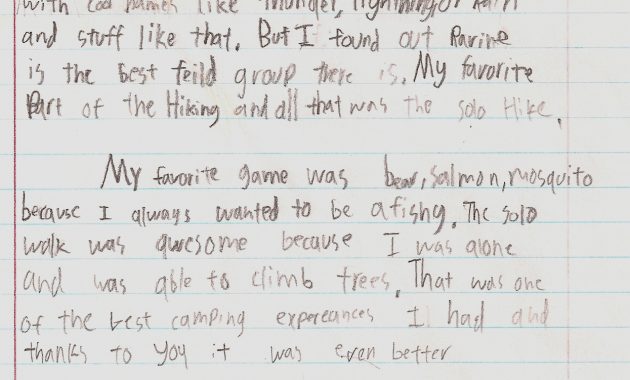 with cool names like thunder, lightning, or rain
and stuff like that. But I found out Ravine
is the best feild group there is. My favorite
Part of the Hiking and all that was the solo Hike.
My favorite game was bear, salmon, mosquito
because I always wanted to be a fishy. The solo
walk was awesome because I was alone
and was able to climb trees. That was one
of the best camping expereances I had and
thanks to you it was even better